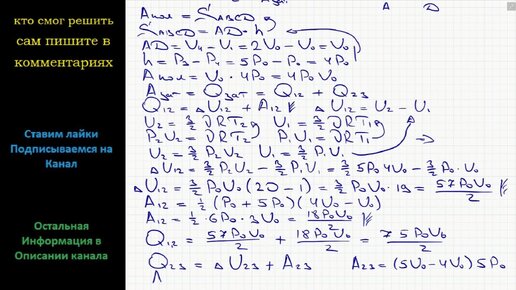 кто смог решить
сам пишите в
комментариях
Ставим лайки
Подписываемся на
Канал
Остальная
Информация в
Описании канала
A пол = S ABCD
S ABCD = AD · h
AD = V₄ - V₁ = 2V₀ - V₀ = V₀
h = P₃ - P₄ = 5P₀ - P₀ = 4P₀
A пол = V₀ · 4P₀ = 4P₀V₀
A зат = Q зат = Q₁₂ + Q₂₃
Q₁₂ = ΔU₁₂ + A₁₂ ΔU₁₂ = U₂ - U₁
U₂ = 3/2 νRT₂ U₁ = 3/2 νRT₁
P₂V₂ = νRT₂ P₁V₁ = νRT₁
U₂ = 3/2 P₂V₂ U₁ = 3/2 P₁V₁
ΔU₁₂ = 3/2 P₂V₂ - 3/2 P₁V₁ = 3/2 5P₀4V₀ - 3/2 P₀·V₀
ΔU₁₂ = 3/2 P₀V₀(20 - 1) = 3/2 P₀V₀ · 19 = 57P₀V₀/2
A₁₂ = 1/2 (P₀ + 5P₀)(4V₀ - V₀)
A₁₂ = 1/2 · 6P₀ · 3V₀ = 18P₀V₀/2
Q₁₂ = 57P₀V₀/2 + 18P₀V₀/2 = 75P₀V₀/2
Q₂₃ = ΔU₂₃ + A₂₃ A₂₃ = (5V₀ - 4V₀)5P₀